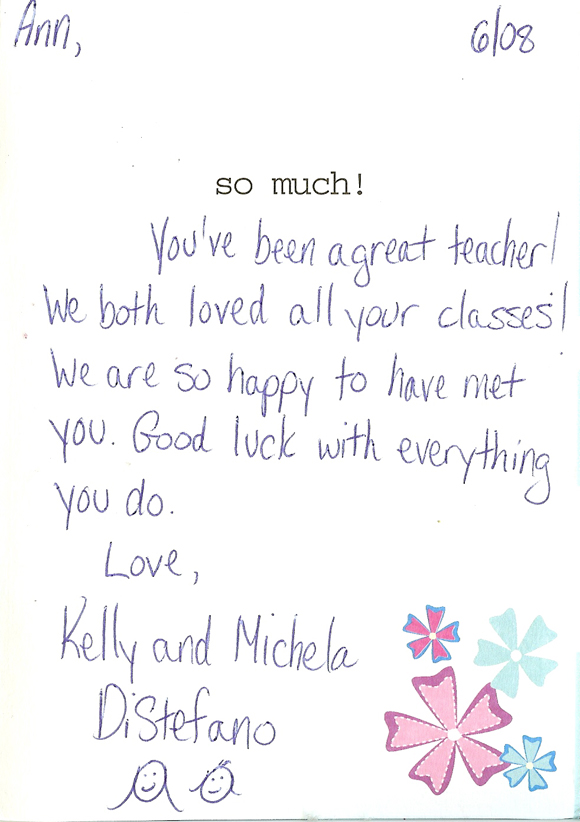 Ann, 6/08
so much!
You've been a great teacher!
We both loved all your classes!
We are so happy to have met
you. Good luck with everything
you do.
Love,
Kelly and Michela
DiStefano